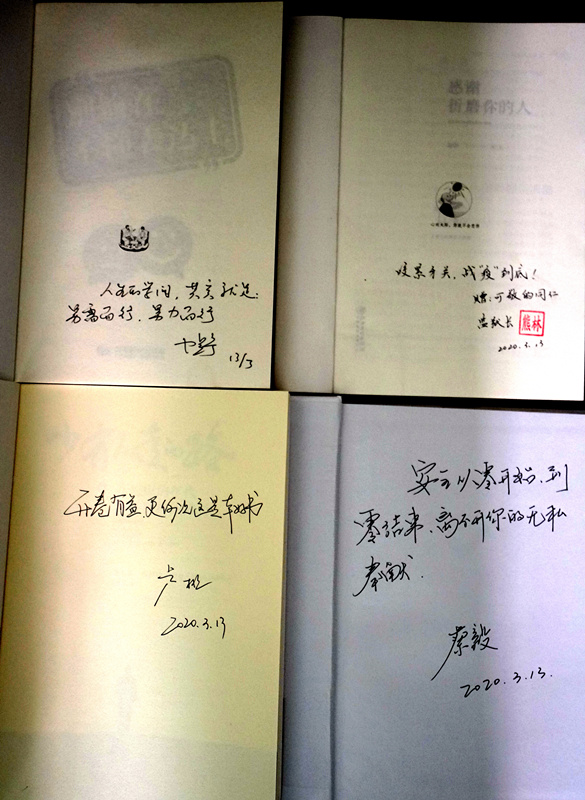 人生的学问，其实就是：
量需而行、量力而行
13/3
感谢
折磨你的人
战“疫”到底！
赠：可敬的同仁
熊林
2020.3.13
开卷有益，更何况这是本好书
2020.3.13
安全从零开始，到
零结束，离不开你的无私
奉献．
蔡毅
2020.3.13.